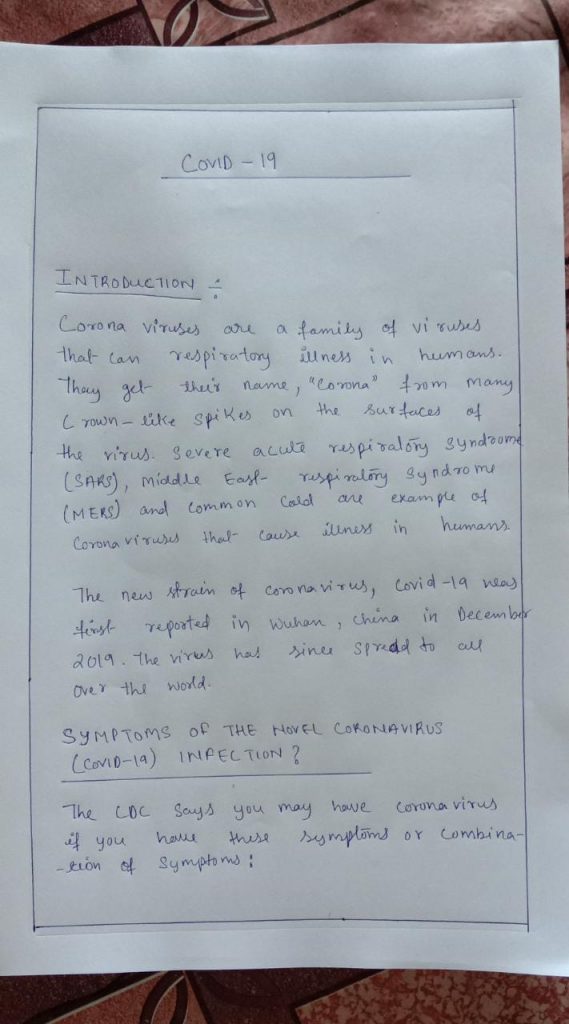 COVID - 19
INTRODUCTION ÷
Corona viruses are a family of viruses
that can respiratory illness in humans.
Thay get their name, "Corona" from many
Crown - like spikes on the surfaces of
the virus. Severe acute respiratory syndrome
(SARS), Middle East respiratory syndrome
(MERS) and common cold are example of
Corona viruses that cause illness in humans.
The new strain of coronavirus, Covid -19 was
first reported in Wuhan, china in December
2019. The virus has since spread to all
over the world.
SYMPTOMS OF THE NOVEL CORONAVIRUS
(COVID-19) INFECTION?
The CDC Says you may have coronavirus
if you have these symptoms or combina-
-tion of symptoms: